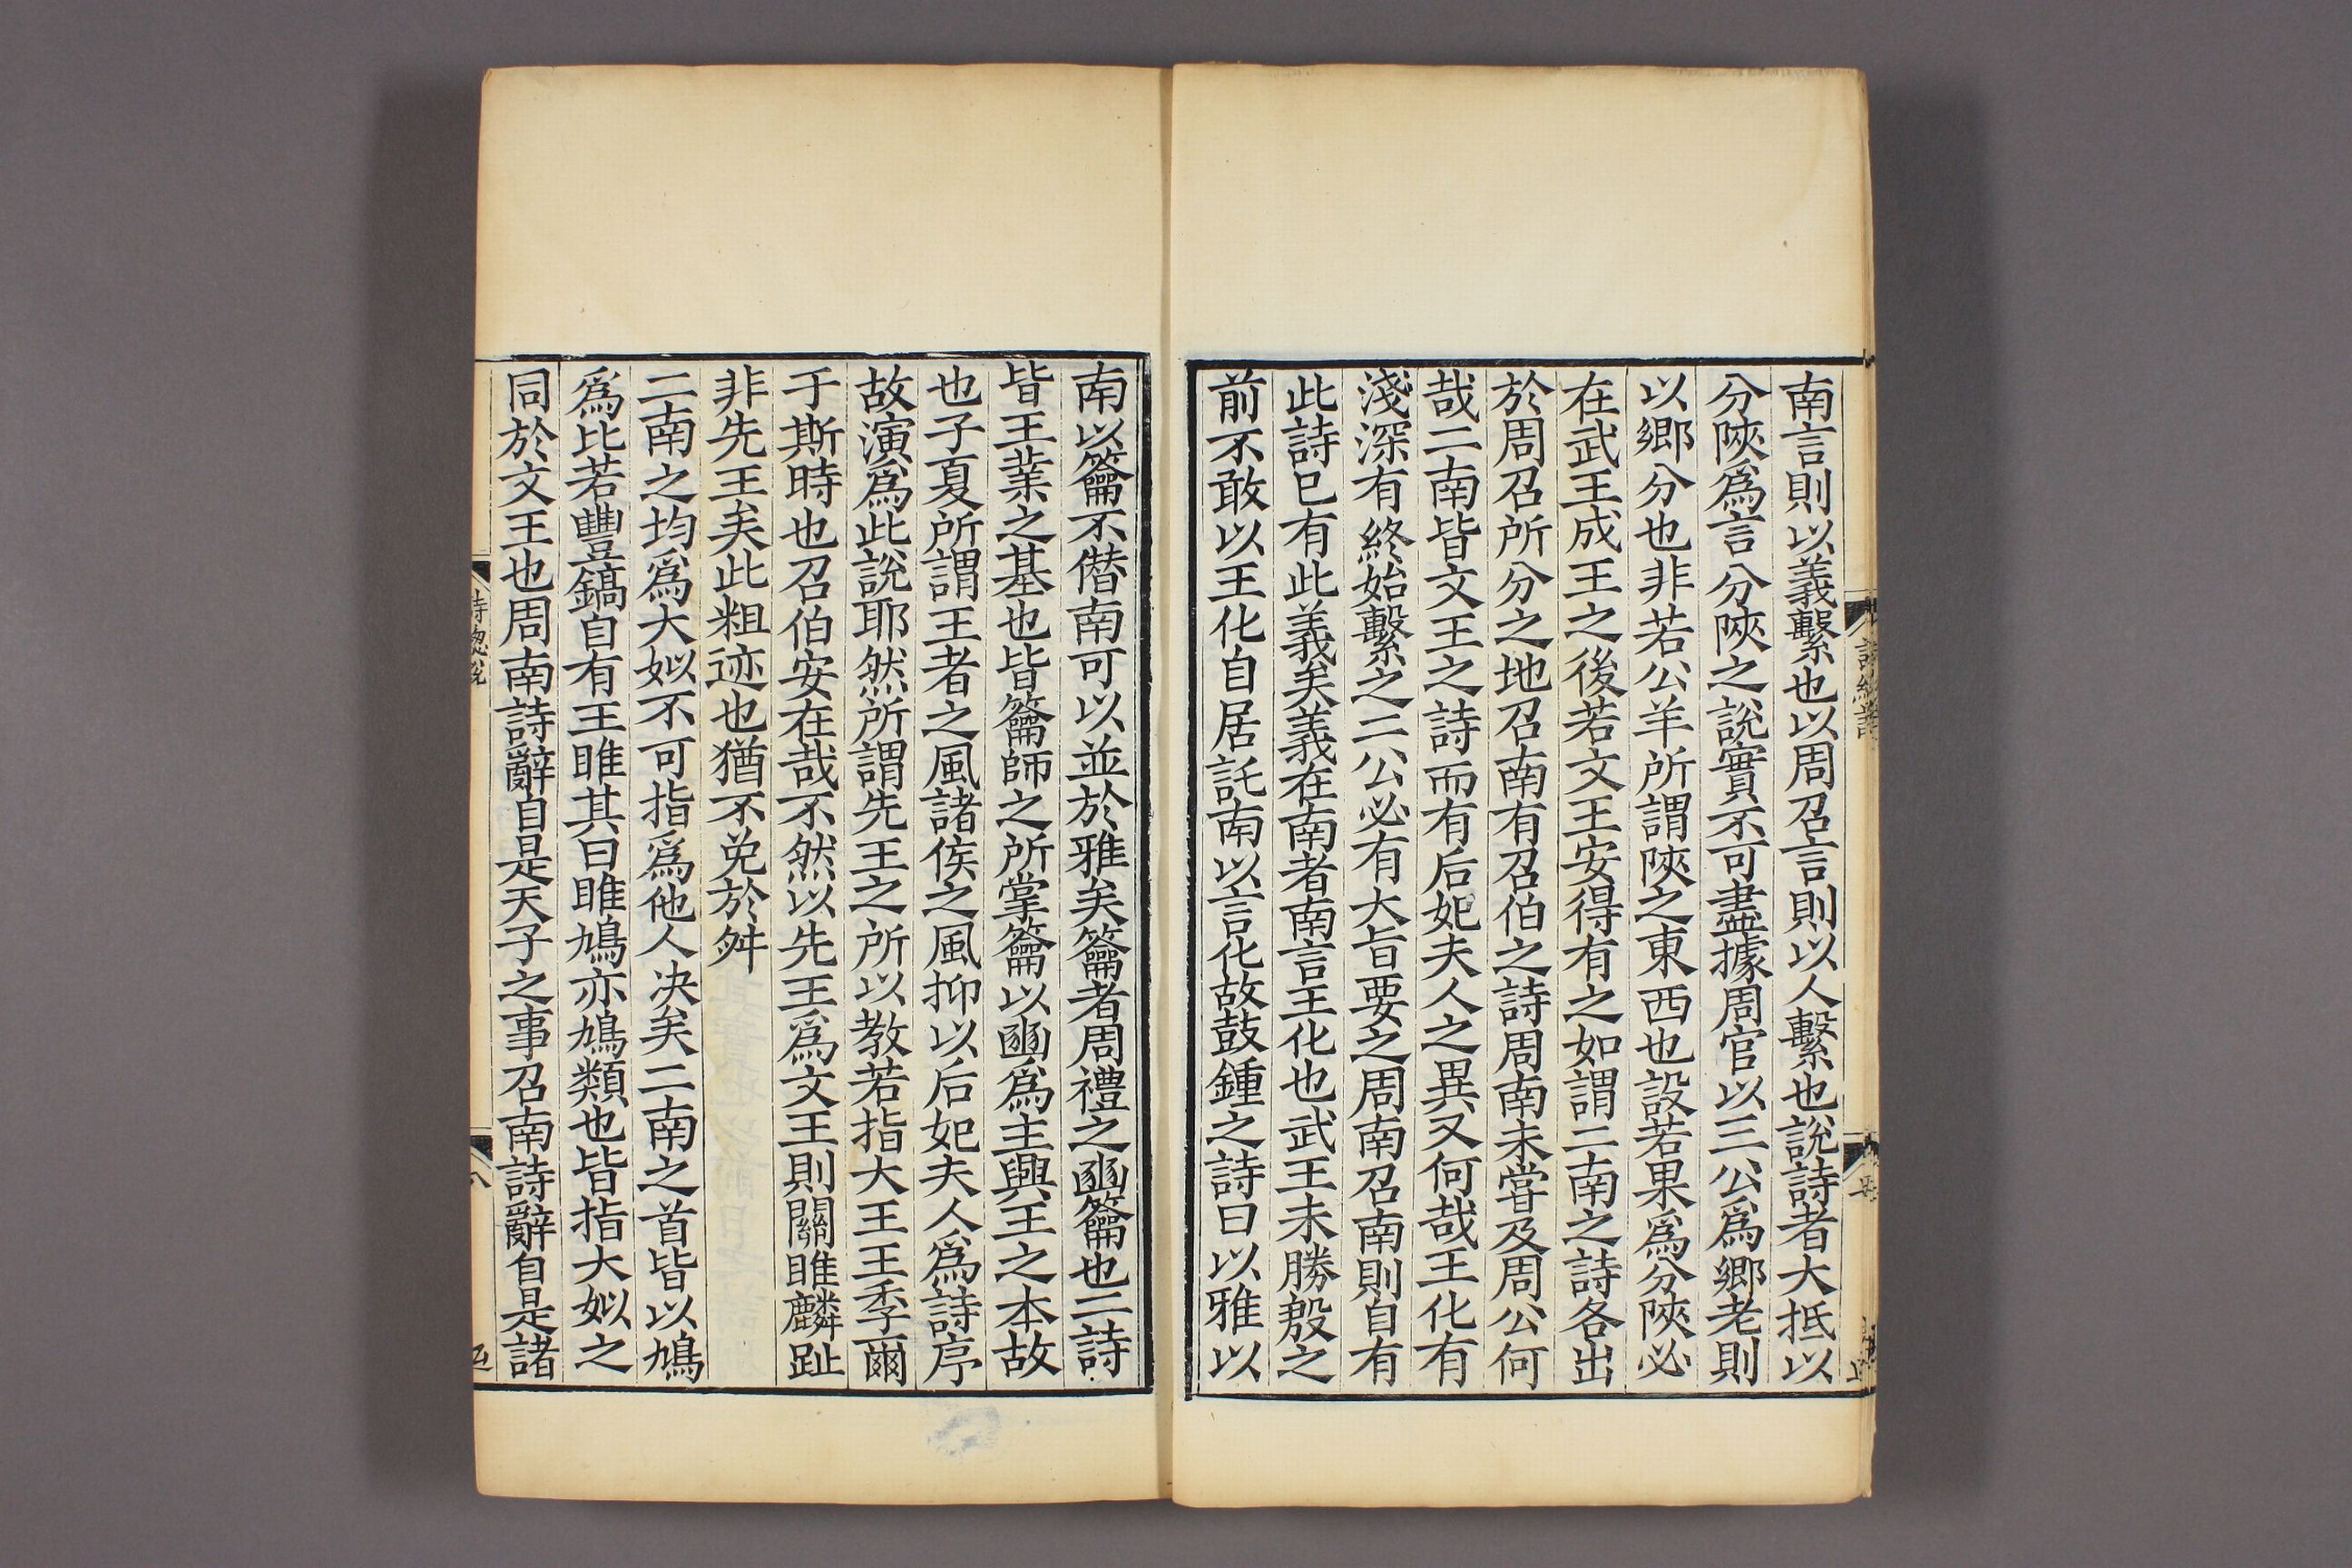 南言則以義繫也以周召言則以人繫也說詩者大抵以
分陝爲言分陝之說實不可盡據周官以三公爲鄉老則
以鄉分也非若公羊所謂陝之東西也設若果爲分陝必
在武王成王之後若文王安得有之如謂二南之詩各出
於周召所分之地召南有召伯之詩周南未嘗及周公何
哉二南皆文王之詩而有后妃夫人之異又何哉王化有
淺深有終始繫之二公必有大旨要之周南召南則自有
此詩已有此義矣義在南者南言王化也武王未勝殷之
前不敢以王化自居託南以言化故鼓鍾之詩曰以雅以
南以籥不僭南可以並於雅矣籥者周禮之豳籥也二詩
皆王業之基也皆籥師之所掌籥以豳爲主興王之本故
也子夏所謂王者之風諸侯之風抑以后妃夫人爲詩序
故演爲此說耶然所謂先王之所以教若指大王王季爾
于斯時也召伯安在哉不然以先王爲文王則關雎麟趾
非先王矣此粗迹也猶不免於舛
二南之均爲大姒不可指爲他人决矣二南之首皆以鳩
爲比若豐鎬自有王雎其曰雎鳩亦鳩類也皆指大姒之
同於文王也周南詩辭自是天子之事召南詩辭自是諸
詩總說
八
五